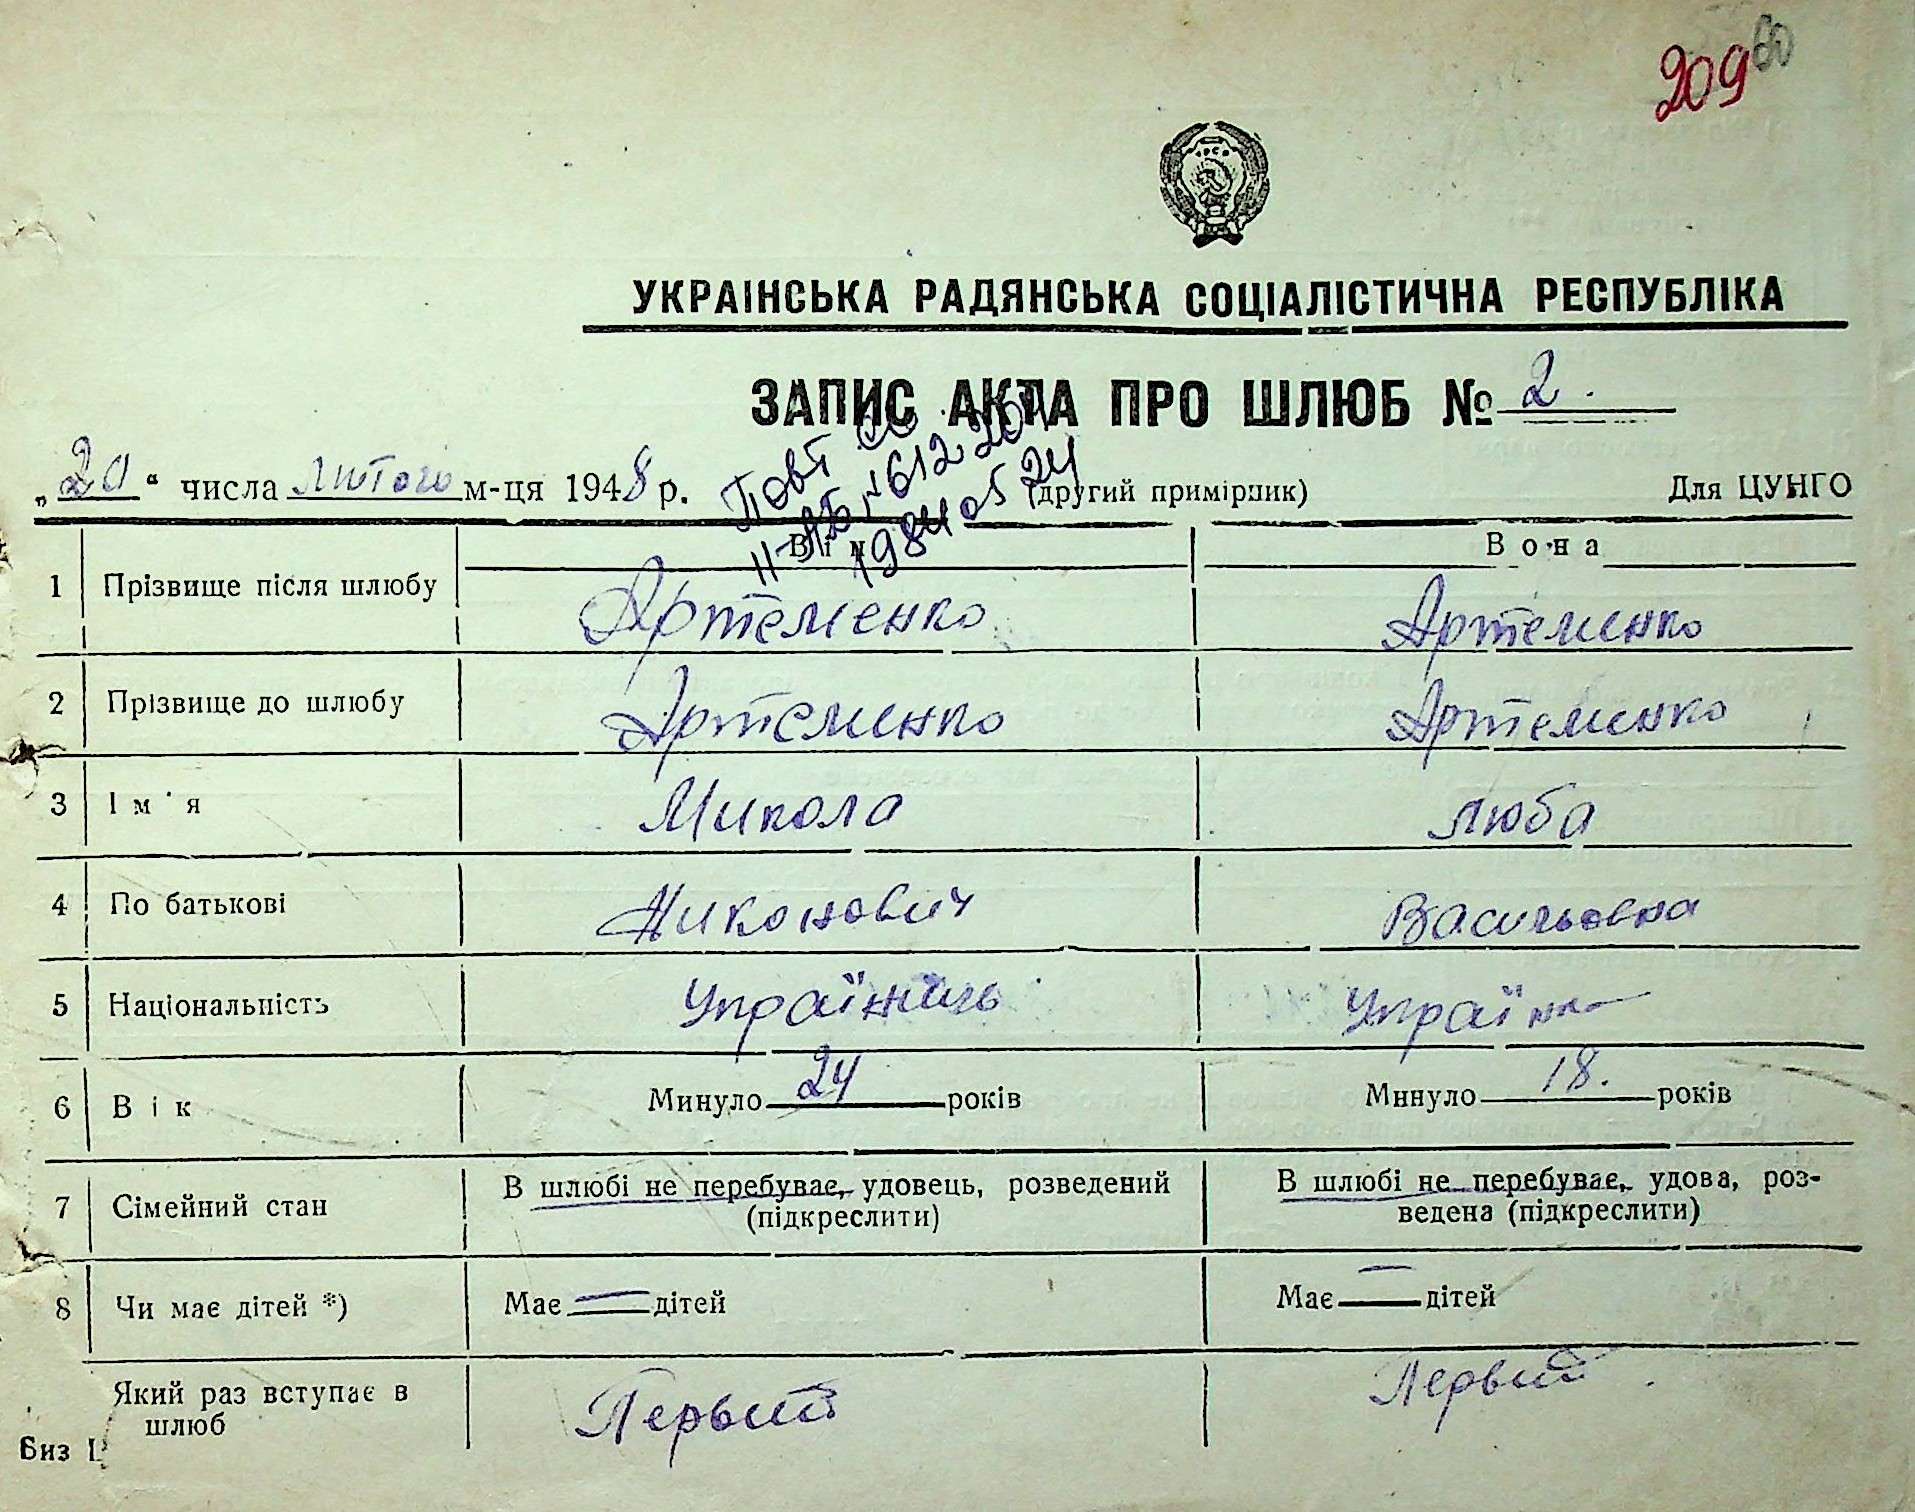 209 60
УКРАІНСЬКА РАДЯНСЬКА СОЦІАЛІСТИЧНА РЕСПУБЛІКА
ЗАПИС АКТА ПРО ШЛЮБ № 2.
„20“ числа лютого м-ця 1948 р. (другий примірник) Для ЦУНГО
Повт
II-АБ № 612207
1984 05 24
Він Вона
1 Прізвище після шлюбу Артеменко Артеменко
2 Прізвище до шлюбу Артеменко Артеменко
3 Ім'я Микола Люба
4 По батькові Никонович Васильовна
5 Національність Українець Українка
6 Вік Минуло 24 років Минуло 18. років
7 Сімейний стан В шлюбі не перебуває, удовець, розведений (підкреслити) В шлюбі не перебуває, удова, роз-
ведена (підкреслити)
8 Чи має дітей *) Має — дітей Має — дітей
Який раз вступає в шлюб Первый Первый
Биз